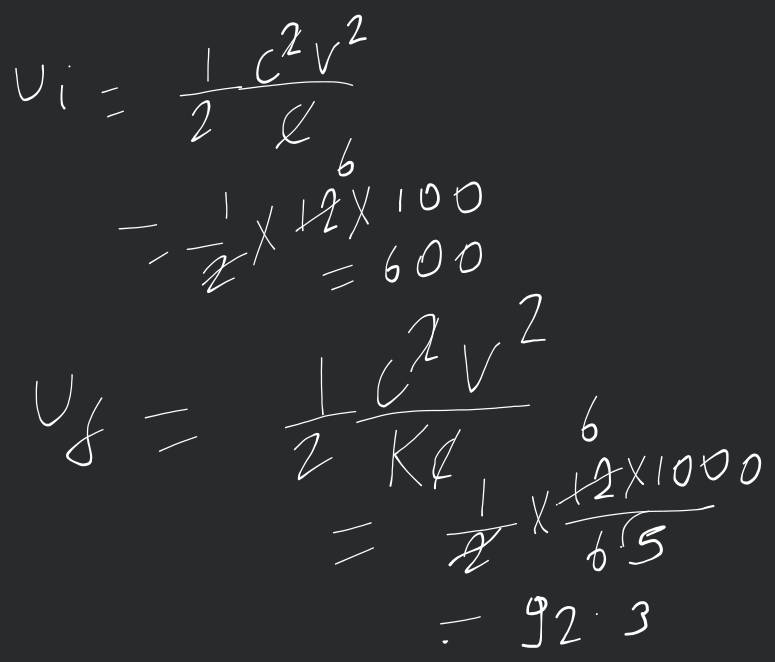 Ui = 1/2 C²V²/C
= 1/2 × 12 6 × 100
= 600
Uf = 1/2 C²V²/KC
= 1/2 × 12 6 × 1000/65
= 92.3